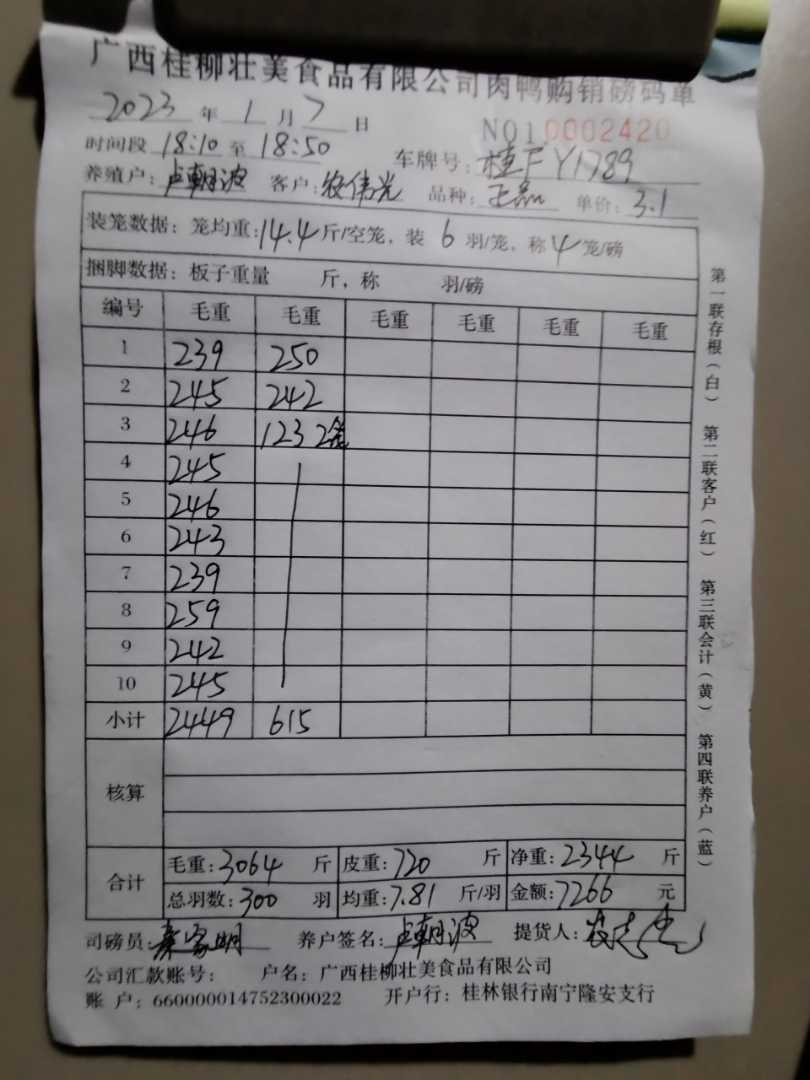 广西桂柳壮美食品有限公司肉鸭购销磅码单
2023 年 1 月 7 日
NO10002420
时间段 18:10 至 18:50 车牌号: 桂FY1789
养殖户: 卢朝波 客户: 农伟光 品种: 正品 单价: 3.1
装笼数据: 笼均重: 14.4 斤/空笼, 装 6 羽/笼, 称 4 笼/磅
捆脚数据: 板子重量 斤, 称 羽/磅
编号 毛重 毛重 毛重 毛重 毛重 毛重
1 239 250
2 245 242
3 246 123 2笼
4 245
5 246
6 243
7 239
8 259
9 242
10 245
小计 2449 615
核算
合计
毛重: 3064 斤 皮重: 720 斤 净重: 2344 斤
总羽数: 300 羽 均重: 7.81 斤/羽 金额: 7266 元
司磅员: 家明 养户签名: 卢朝波 提货人:
公司汇款账号: 户名: 广西桂柳壮美食品有限公司
账 户: 660000014752300022 开户行: 桂林银行南宁隆安支行
第一联存根(白) 第二联客户(红) 第三联会计(黄) 第四联养户(蓝)